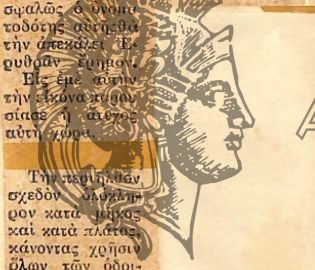 σφαλῶς ὁ ὀνομα
τοδότης αὐτῆς θὰ
τὴν ἀπεκάλει Ἐ-
ρυθρὰν ἔρημον.
Εἰς ἐμὲ αὐτὴν
τὴν εἰκόνα παρου
σίασε ἡ ἄτυχος
αὐτὴ χώρα.
Τὴν περιῆλθον
σχεδὸν ὁλόκλη-
ρον κατὰ μῆκος
καὶ κατὰ πλάτος,
κάνοντας χρῆσιν
ὅλων τῶν ὁδοι-